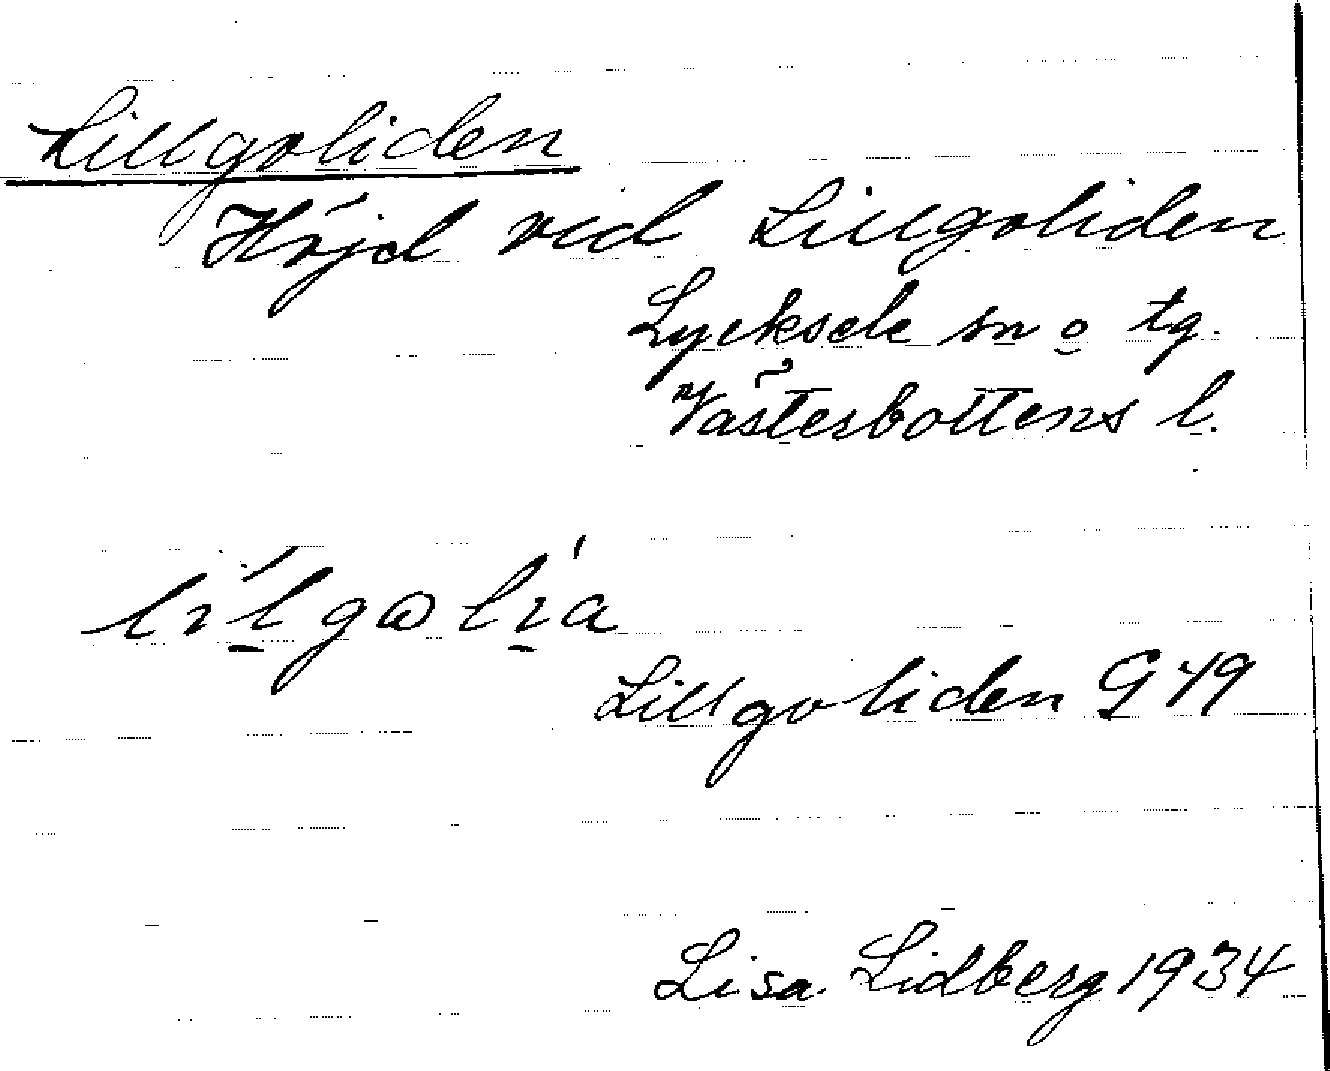 Lillgoliden
Höjd vid Lillgoliden
Lycksele sn o tg.
Västerbottens l.
Lillgoliden G 49
Lisa Lidberg 1934